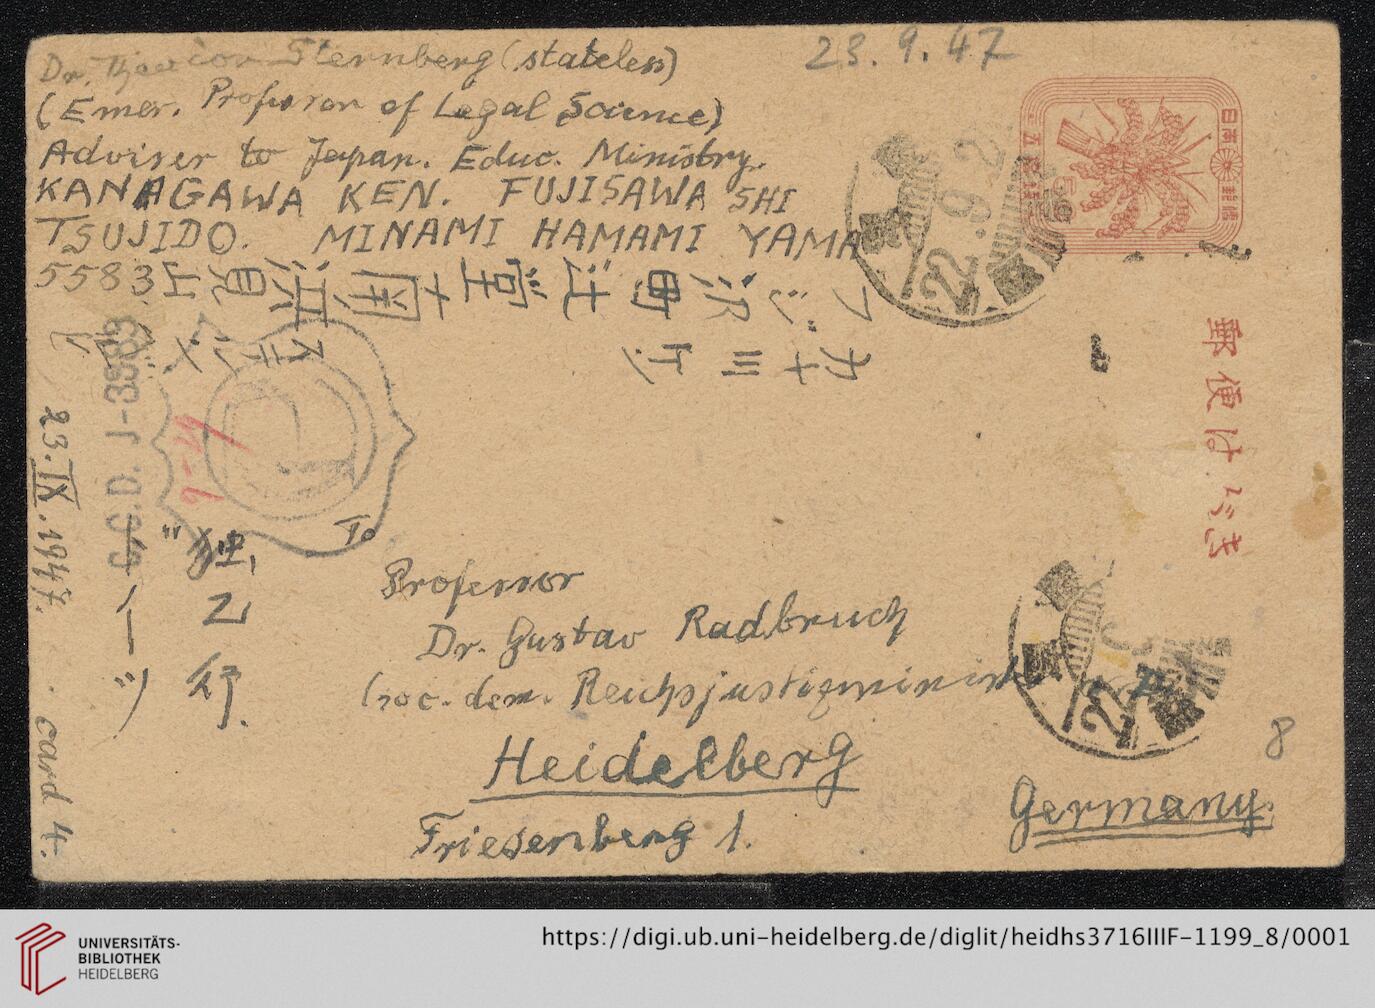 23.9.47
Dr. Theodor Sternberg (stateless)
(Emer. Professor of Legal Science)
Adviser to Japan. Educ. Ministry.
KANAGAWA KEN. FUJISAWA SHI
TSUJIDO. MINAMI HAMAMI YAMA
5583
フジ沢町辻堂南浜見山
カナ川ケン
日本郵便
郵便はがき
C.C.D. J-3883
22.9.2
23.IX.1947.
card 4.
ドイツ
独乙行.
To
Professor
Dr. Gustav Radbruch
(soc. dem. Reichsjustizminister
Heidelberg
Friesenberg 1.
Germany.
22
8
UNIVERSITÄTS-
BIBLIOTHEK
HEIDELBERG
https://digi.ub.uni-heidelberg.de/diglit/heidhs3716IIIF-1199_8/0001